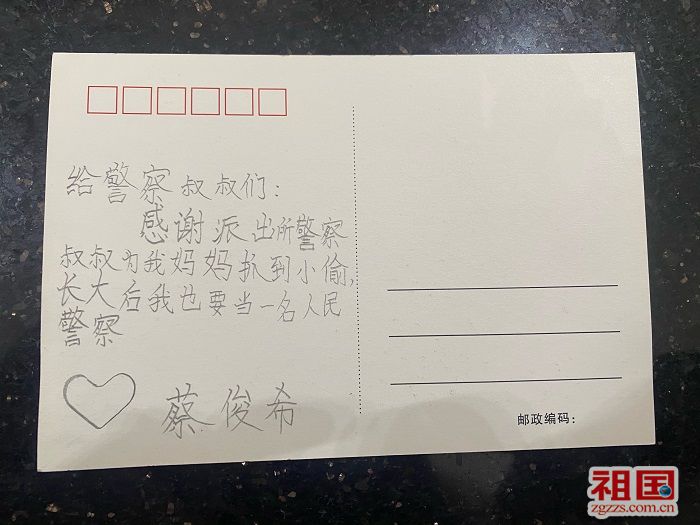 给警察叔叔们：
感谢派出所警察
叔叔为我妈妈抓到小偷，
长大后我也要当一名人民
警察
蔡俊希
邮政编码：
祖国
zgzzs.com.cn